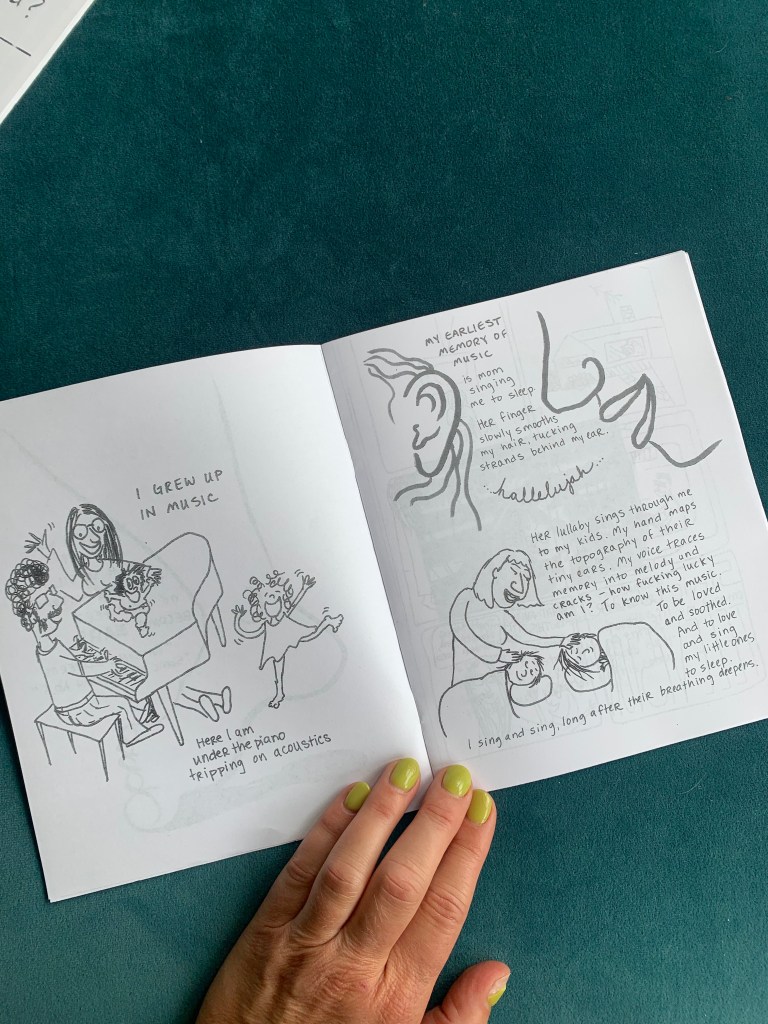 I GREW UP
IN MUSIC
Here I am
under the piano
tripping on acoustics
MY EARLIEST
MEMORY OF
MUSIC
is mom
singing
me to sleep.
Her finger
slowly smooths
my hair, tucking
strands behind my ear.
hallelujah
Her lullaby sings through me
to my kids. My hand maps
the topography of their
tiny ears. My voice traces
memory into melody and
cracks – how fucking lucky
am I? To know this music.
To be loved
and soothed.
And to love
and sing
my little ones
to sleep.
I sing and sing, long after their breathing deepens.